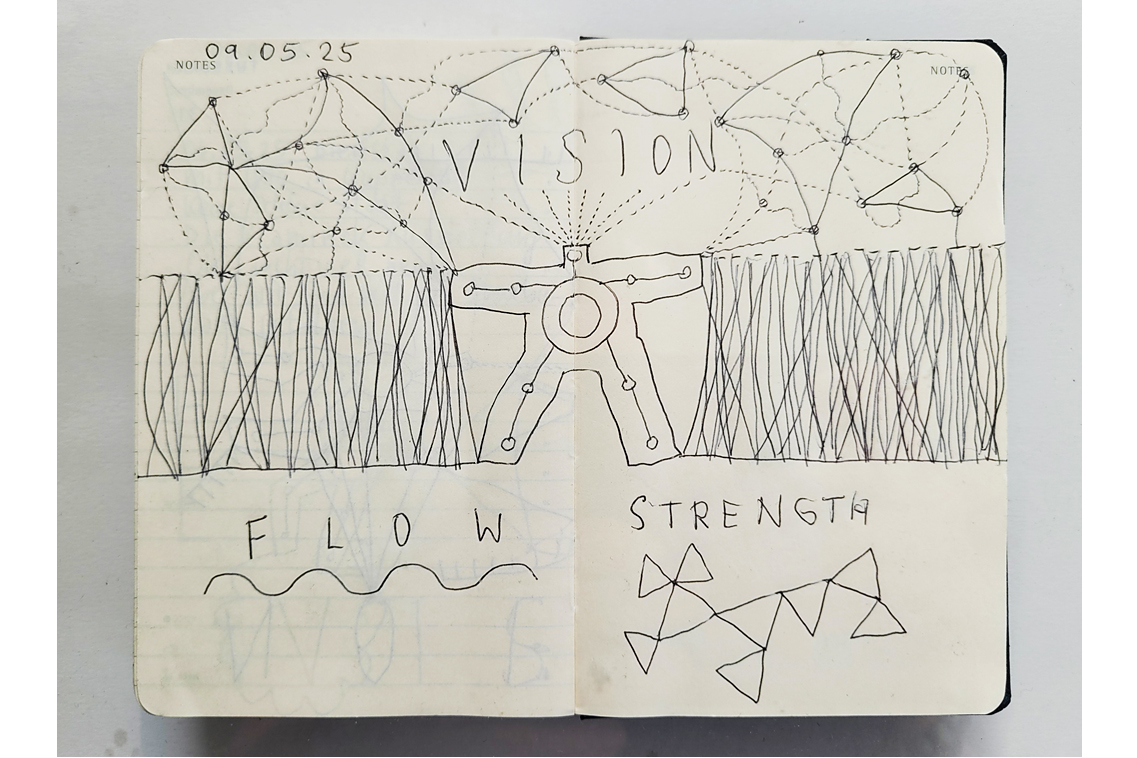 09.05.25
NOTES
NOTES
VISION
FLOW
STRENGTH